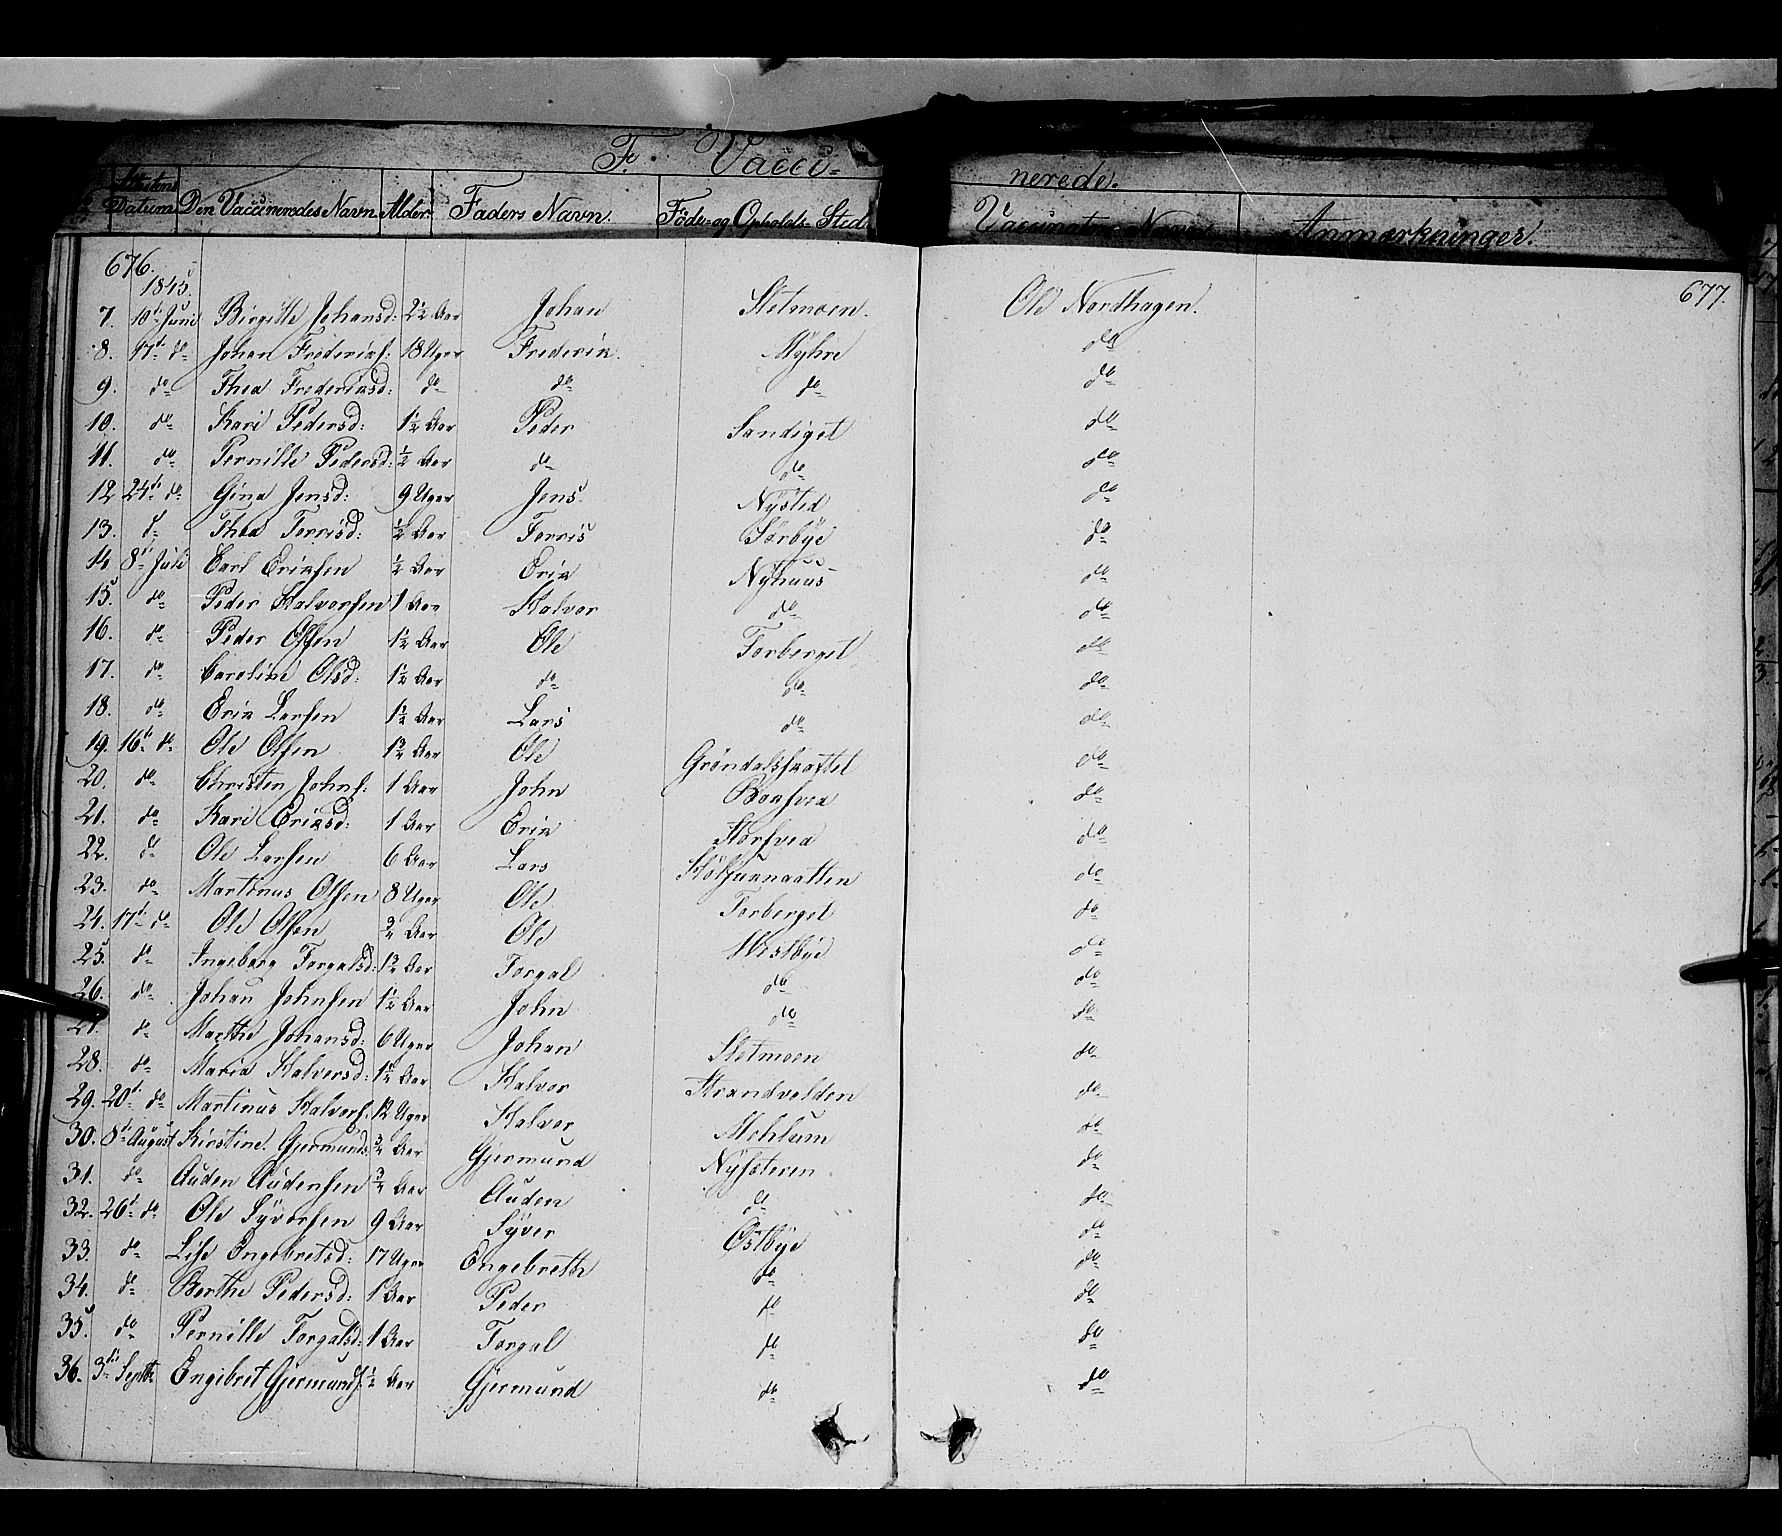 F. Vacci- nerede.
Attestens Datum Den Vaccineredes Navn. Alder. Faders Navn. Föde- og Opholds-Sted Vaccinateurs Navn Anmærkninger.
676. 677.
1845.
7. 10de Juni Birgitte Johansd: 2½ Aar Johan Sletmoen. Ole Nordhagen.
8. 17de do Johan Frederiks: 18 Uger Frederik. Myhre do
9. do Thea Frederiksd: do do do do
10. do Kari Pedersd: 1½ Aar Peder Sandiget do
11. do Pernille Pedersd: ½ Aar do do do
12. 24de do Gina Jensd: 9 Uger Jens. Nysted do
13. do Thea Torrisd: ½ Aar Torris Sørbye do
14. 8de Juli Carl Eriksen ½ Aar Erik Nyhuus do
15. do Peder Halvorsen 1 Aar Halvor do do
16. do Peder Olsen 1½ Aar Ole Torberget do
17. do Caroline Olsd: 1½ Aar do do do
18. do Erik Larsen 1½ Aar Lars do do
19. 16de do Ole Olsen Ole do
20. do Christen Johns: 1 Aar John do
21. do Kari Eriksd: 1 Aar Erik Storsvea do
22. do Ole Larsen 6 Aar Lars do
23. do Martinus Olsen 8 Uger Ole Torberget do
24. 17de do Ole Olsen Aar Ole Westbye do
25. do Ingeborg Torgalsd: Aar Torgal do do
26. do Johan Johnsen 1½ Aar John do do
27. do Marthe Johansd: 6 Uger Johan Sletmoen do
28. do Maria Halvorsd: Aar Halvor Strandvolden do
29. 20de do Martinus Halvors: 12 Uger Halvor Mehlum do
30. 8de August Kirstine Gjermundsd Aar Gjermund Nysæteren do
31. do Auden Audensen Aar Auden do do
32. 26de do Ole Syversen 9 Aar Syver Østbye do
33. do Lise Engebretsd: 17 Uger Engebreth do do
34. do Berthe Pedersd: 1 Aar Peder do do
35. do Pernille Torgalsd: 1 Aar Torgal do do
36. 3die Septbr Engebret Gjermunds. ½ Aar Gjermund do do